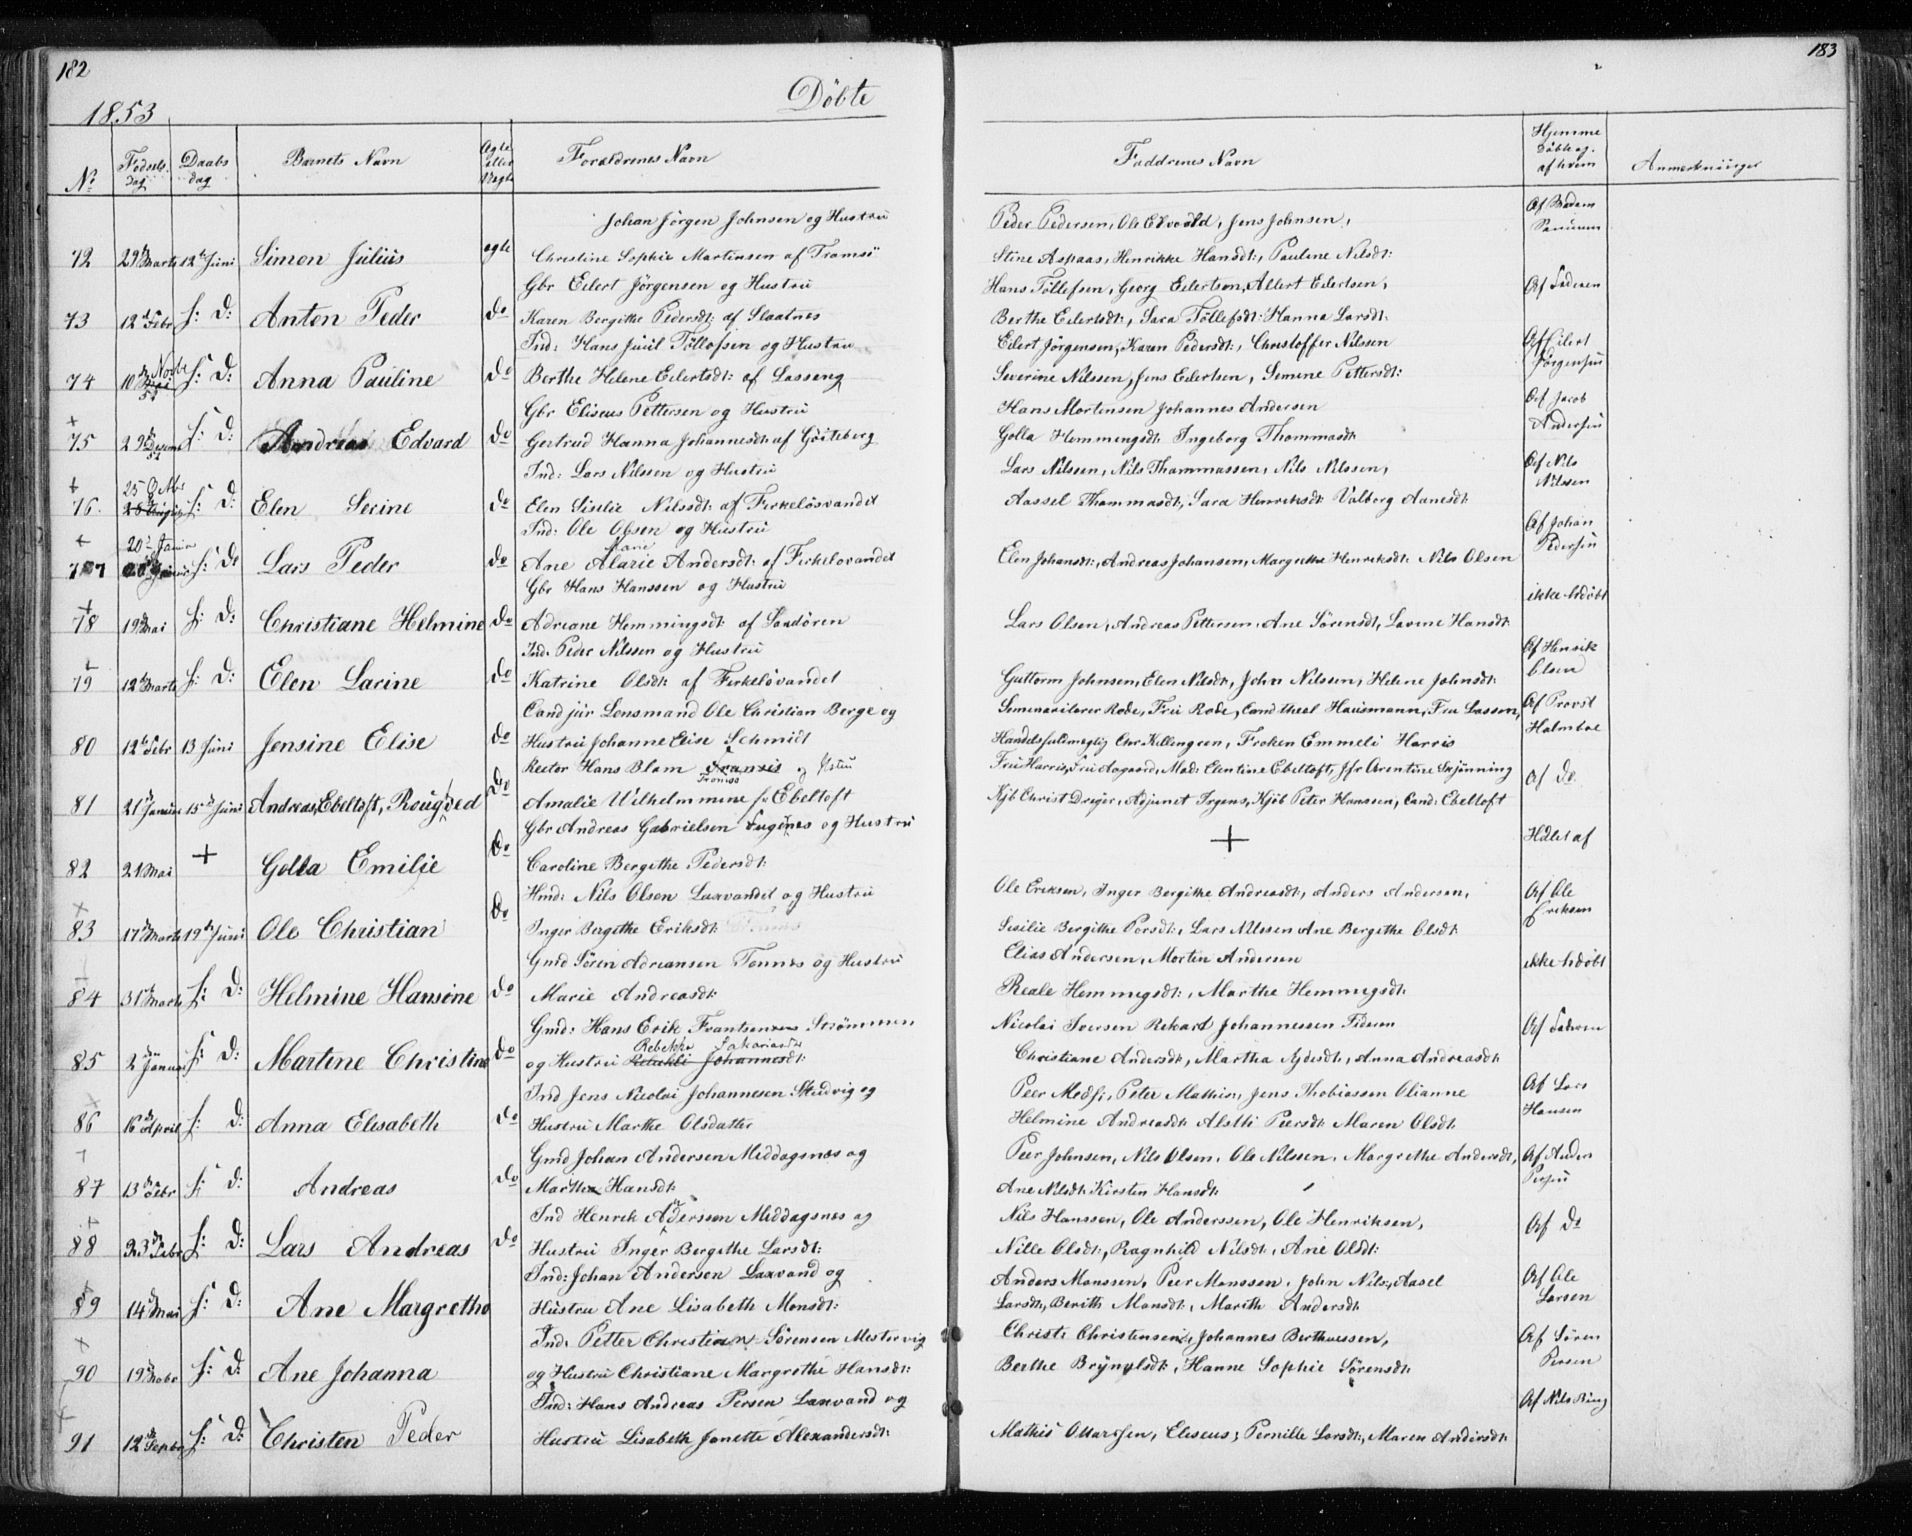 182
183
1853
Döbte
No
Fødsels dag
Daabs dag
Barnets Navn
Ægte eller Uægte
Forældrenes Navn
Faddrenes Navn
Hjemme Døbt og af hvem
Anmerkninger
Johan Jörgen Johnsen og Hustru
Peder Pedersen, Ole Edvard, Jens Johnsen,
72 29 Marts 12te Juni Simon Julius egte Christine Sophie Martinsen af Tromsö
Stine Aspaas, Henrikke Hansdt:, Pauline Nilsdt:
Gbr Eilert Jörgensen og Hustru
Hans Töllefsen, Georg Eilertsen, Albert Eilertsen,
Af Faderen
73 12 Febr s: D: Anton Peder do Karen Bergitte Pedersdt: af Slaatnes
Berthe Eilertsdt:, Sara Töllefsdt: Hanna Larsdt:
Ind: Hans Juul Töllofsen og Hustru
Eilert Jörgensen, Karen Pedersdt:, Christoffer Nilsen
Af Eilert Jörgensen
74 10 Novbr s: D: Anna Pauline do Berthe Helene Eilertsdt: af Lasseng
Severine Nilssen, Jens Eilertsen, Simene Pettersdt:
Gbr Eliseus Pettersen og Hustru
Hans Mortensen Johannes Andersen
Af Jacob Andersen
75 29 s: D: Andreas Edvard do Gertrud Hanna Johannesdt: af Göiteberg
Golla Hemmingsdt: Ingeborg Thommasdt:
Ind: Lars Nilssen og Hustru
Lars Nilssen, Nils Thammassen, Nils Nilssen,
Af Nils Nilssen
76. 25 s: D: Elen Serine do Elen Siselie Nilssdt: af Firkelösvandet
Aassel Thammasdt:, Sara Henriksdt: Valborg Aanesdt:
Ind: Ole Olsen og Hustru
Af Johan Pedersen
77 20 Janr s: D: Lars Peder do Ane Marie Andersdt: af Firkelovandet
Elen Johansdt:, Andreas Johansen, Margrethe Henriksdt: Nils Olsen
Gbr Hans Hanssen og Hustru
ikke hdöbt
78 19 Mai s: D: Christiane Helmine do Adriane Hemmingsdt: af Sandören
Lars Olsen, Andreas Pettersen, Ane Sörensdt:, Lovine Hansdt:
Ind: Peder Nilssen og Hustru
Af Henrik Olsen
79 12 Marts s: D: Elen Larine do Katrine Olsdt: af Firkelövandet
Guttorm Johnsen, Elen Nilsdt:, John Nilssen, Helene Johnsdt:
Cand jur Lensmand Ole Christian Berge og
Seminarilærer Rode, Fru Rode, Cand theol Hausmann, Fru Lassen,
Af Provst Holmboe
80 12te Febr 13 Juni Jensine Elise do Hustru Johanne Elise Schmidt
Handelsfuldmegtig Chr Killengreen, Fröken Emmeli Harris
Rector Hans Blom og Hstru
Fru Harris, Fru Aagaard, Mad: Elentine Ebeltoft, Jfr Arentine Skjönning
Af do
81 21 Januar 15 Juni Andreas, Ebeltoft, do Amalie Wilhelmmine f. Ebeltoft
Kjb Christ Dreyer, Adjunct Irgens, Kjöb Peter Hanssen, Cand: Ebeltoft
Gbr Andreas Gabrielsen og Hustru
+
Hdlet af
82 21 Mai + Golla Emilie do Caroline Bergithe Pedersdt:
Hmd: Nils Olsen Laxvandet og Hustru
Ole Eriksen, Inger Bergithe Andreasdt:, Anders Andersen,
Af Ole Eriksen
83 17 Marts 19de Juni Ole Christian do Inger Bergethe Eriksdt:
Sisilie Bergithe Persdt:, Lars Nilssen Ane Bergethe Olsdt:
Gmd Sören Adriansen Tennes og Hustru
Elias Andersen, Mortin Andersen
ikke hdöbt
84 31 Marts s: D: Helmine Hansine do Marie Andreasdt:
Reale Hemmigsdt:, Marthe Hemmigsdt:
Gmd: Hans Erik Frantsen Strömmen
Nicolai Iversen Rekart Johannessen
Af Faderen
85 2 Januar s: D: Martine Christine do og Hustru Rebekka Zakariasdt:
Christiane Andersdt:, Martha, Anna Andreasdt:
Ind Jens Nicolai Johannesen Studvig og
Peter Mathis, Jens Thobiassen Olianne
Af Lars Hansen
86 16 April s: D: Anna Elisabeth do Hustru Marthe Olsdatter
Helmine Andreasdt: Persdt: Maren Olsdt:
Gmd Johan Andersen Meddagsnes og
Peer Johnsen, Nils Olsen, Ole Nilssen, Margrethe Andersdt:,
Af Anders Persen
87 13 Febr s: D: Andreas do Marthe Hansdt:
Ane Nilsdt: Kirsten Hansdt:
Ind Henrik Anderssen Meddagsnes og
Nils Hanssen, Ole Anderssen, Ole Henriksen,
Af do
88 23 Febr s: D: Lars Andreas do Hustru Inger Bergethe Larsdt:
Nille Olsdt:, Ragnhild Nilsdt:, Ane Olsdt:
Ind: Johan Andersen Laxvand og
Anders Monssen, Peer Monssen, John Nils, Aasel
Af Ole Larsen
89 14 Mai s: D: Ane Margrethe Hustru Ane Lisabeth Monsdt:
Larsdt:, Berith Monsdt:, Marith Andersdt:
Ind: Petter Christian Sörensen Mestervig
Christi Christensen, Johannes Berthuessen,
Af Sören Persen
90 19 Nobr s: D: Ane Johanna og Hustru Christiane Margrethe Hansdt:
Berthe Brynylsdt:, Hanne Sophie Sörensdt:
Ind: Hans Andreas Persen Laxvand og
Af Nils Ring
91 12 Septbr s: D: Christen Peder Hustru Lisabeth Janette Alexandersdt:
Mathis, Eliseus, Pernille Larsdt:, Maren Andersdt: